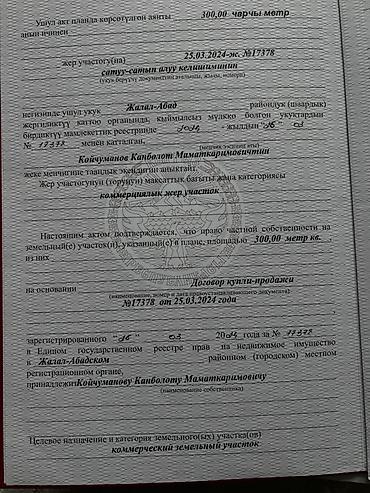 Ушул акт планда көрсөтүлгөн аянты 300,00 чарчы метр
анын ичинен
жер участогу(на) 25.03.2024-ж. №17378
сатуу-сатып алуу келишиминин
(укук берүүчү документтин аталышы, жылы, номери)
негизинде ушул укук Жалал-Абад райондук (шаардык)
жергиликтүү каттоо органында, кыймылсыз мүлккө болгон укуктардын
бирдиктүү мамлекеттик реестринде 2024 - жылдын "26" 03
№ 17378 менен катталган,
Койчуманов Канболот Маматкаримовичтин
(менчик ээсинин аты)
жеке менчигине таандык экендигин аныктайт.
Жер участогунун (торунун) максаттык багыты жана категориясы
коммерциялык жер участок
Настоящим актом подтверждается, что право частной собственности на
земельный(е) участок(и), указанный(е) в плане, площадью 300,00 метр кв.,
из них
на основании Договор купли-продажи
(наименование, номер и дата правоустанавливающего документа)
№17378 от 25.03.2024 года
зарегистрированного "26" 03 2024 года за № 17378
в Едином государственном реестре прав на недвижимое имущество
в Жалал-Абадском районном (городском) местном
регистрационном органе,
принадлежит Койчуманову Канболоту Маматкаримовичу
(наименование собственника)
Целевое назначение и категория земельного(ых) участка(ов)
коммерческий земельный участок